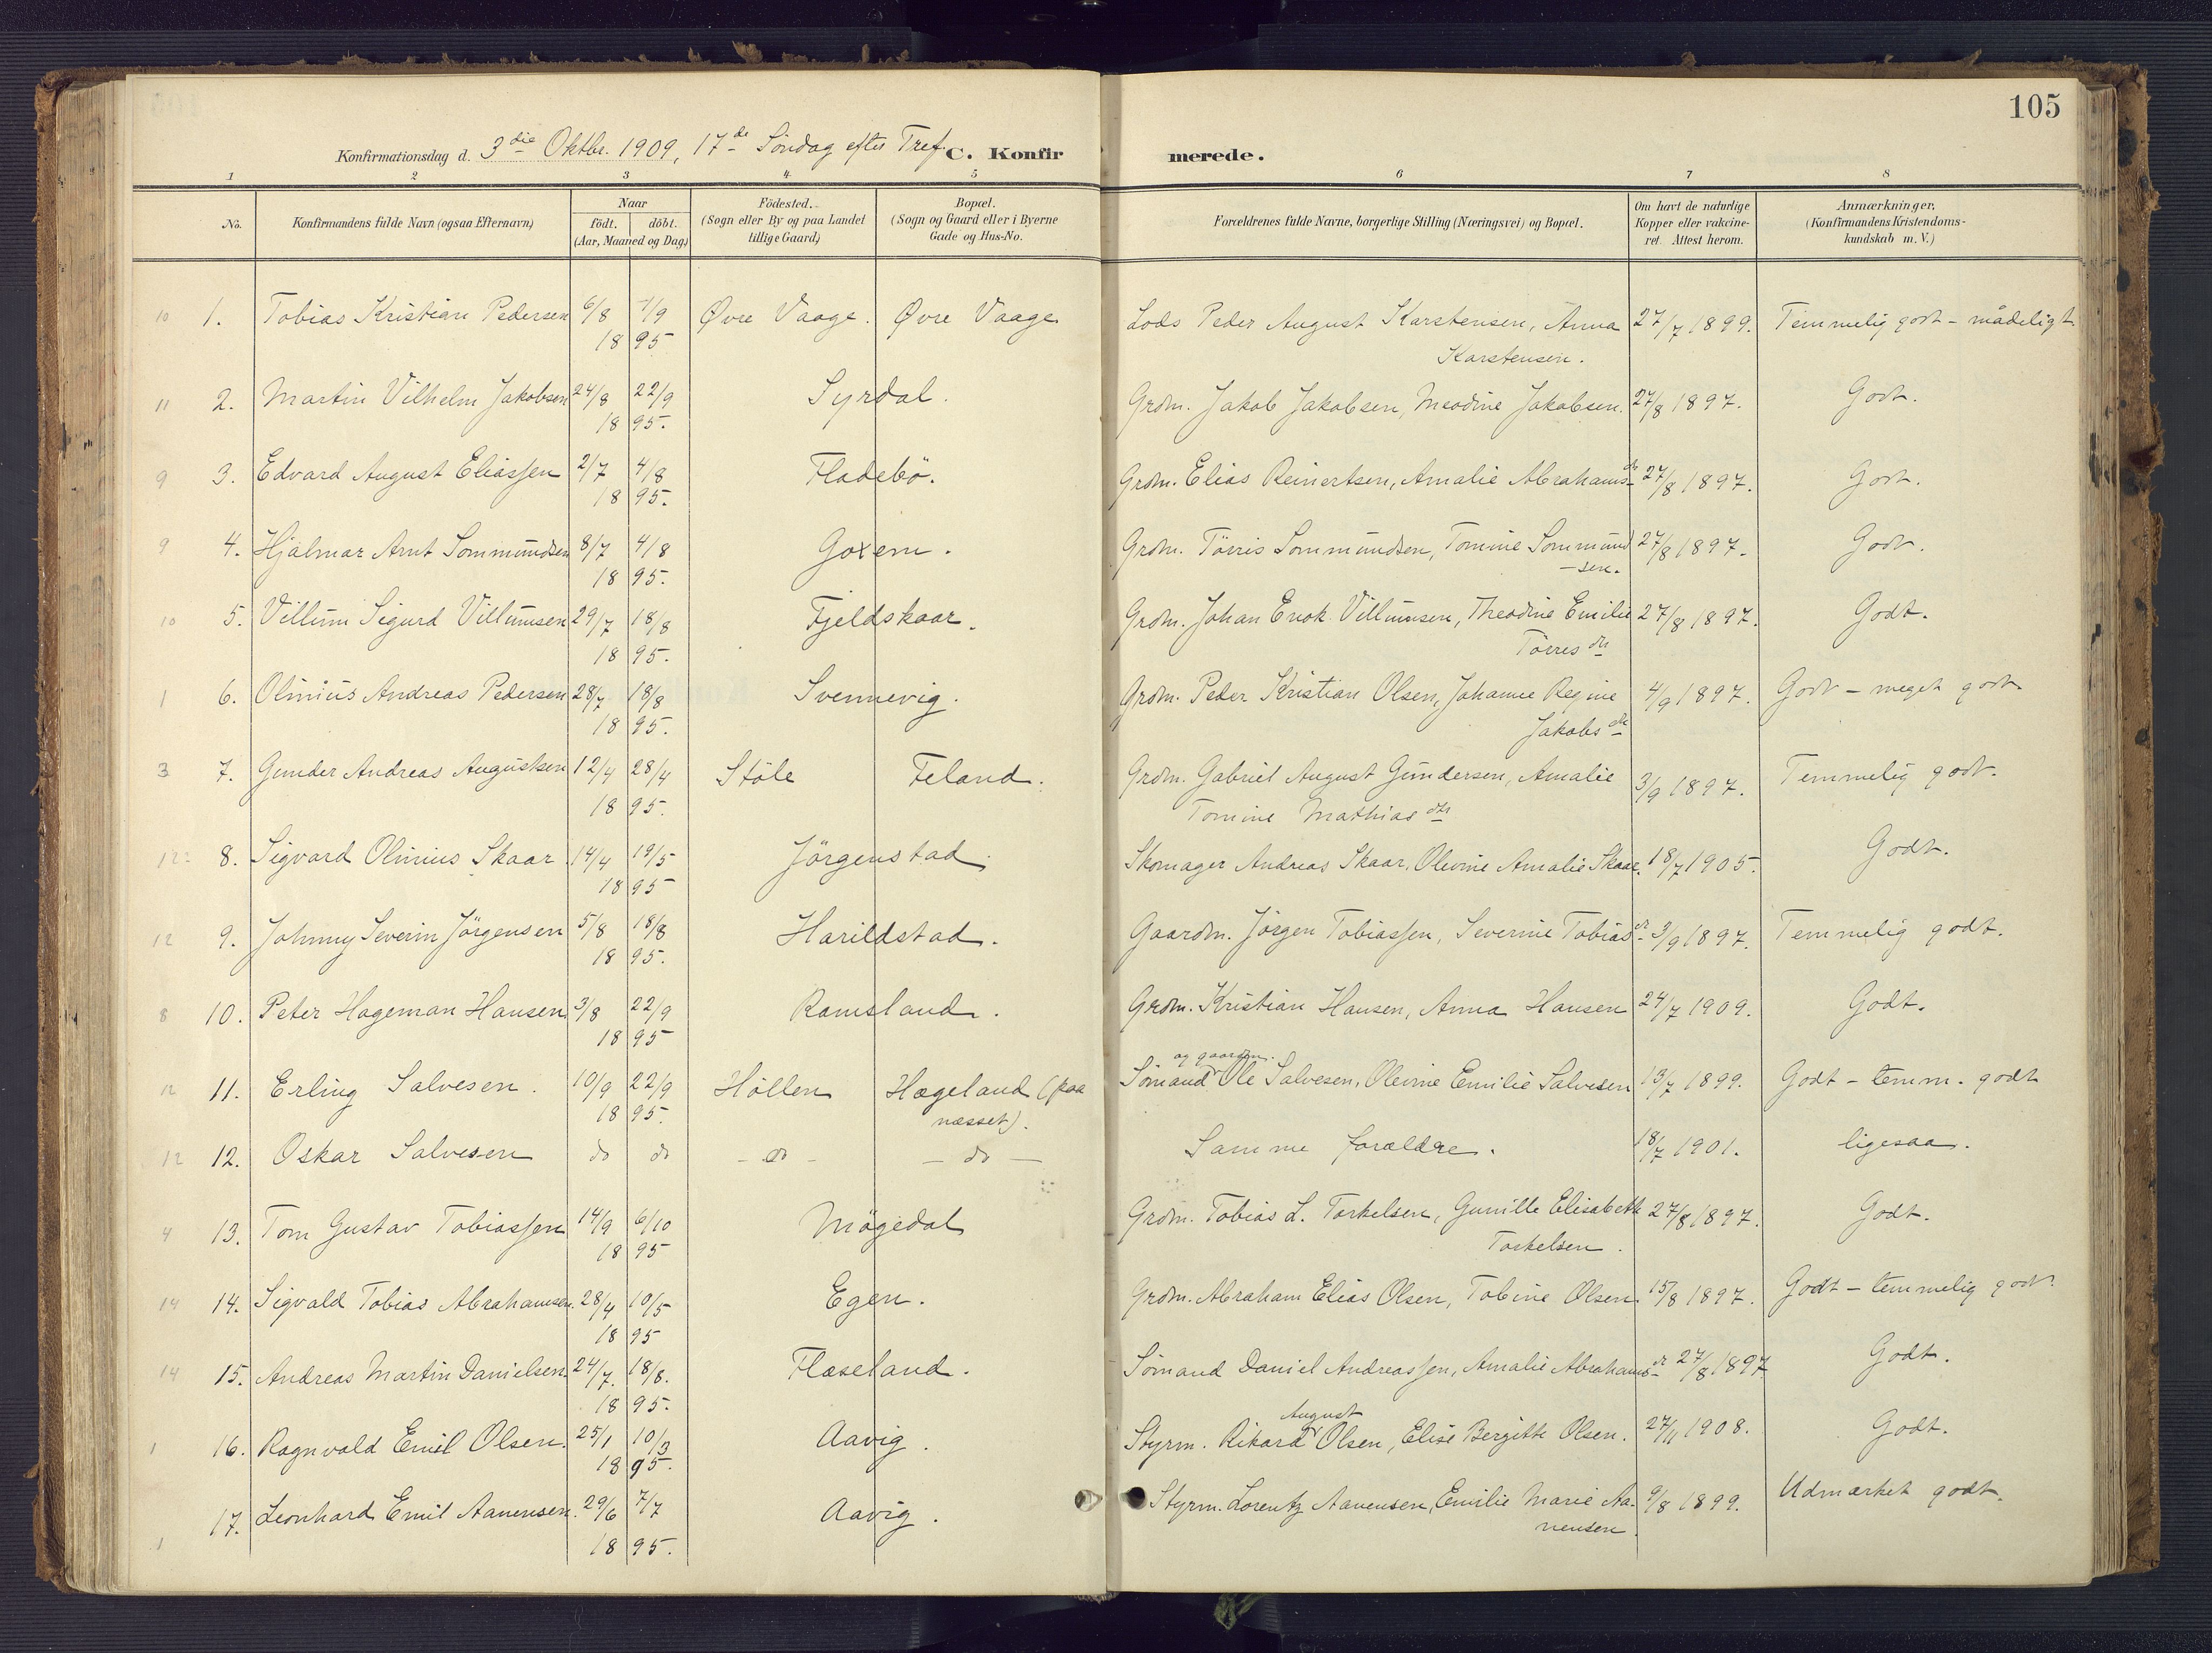 105
Konfirmationsdag d. 3die Oktbr. 1909, 17de Söndag efter Tref. C. Konfirmerede.
1 2 3 4 5 6 7 8
No. Konfirmandens fulde Navn (ogsaa Efternavn) Naar födt. döbt. (Aar, Maaned og Dag) Födested. (Sogn eller By og paa Landet tillige Gaard) Bopæl. (Sogn og Gaard eller i Byerne Gade og Hus-No. Forældrenes fulde Navne, borgerlige Stilling (Næringsvei) og Bopæl. Om havt de naturlige Kopper eller vakcineret. Attest herom. Anmærkninger. (Konfirmandens Kristendomskundskab m. V.)
10 1. Tobias Kristian Pedersen 6/8 1/9 Øvre Vaage. Øvre Vaage Lods Peder August Karstensen, Anna 27/7 1899. Temmelig godt – mådeligt
18 95 Karstensen.
11 2. Martin Vilhelm Jakobsen 24/8 22/9 Syrdal. Grdm. Jakob Jakobsen, Meodine Jakobsen. 27/8 1897. Godt.
18 95.
9 3. Edvard August Eliassen 2/7 4/8 Fladebö. Grdm. Elias Reinertsen, Amalie Abrahamsdr 27/8 1897. Godt.
18 95.
9 4. Hjalmar Arnt Sommundsen 8/7 4/8 Goxem. Grdm. Törris Sommundsen, Tomine Sommund 27/8 1897. Godt.
18 95. –sen.
10 5. Villum Sigurd Villumsen 29/7 18/8 Fjeldskaar. Grdm. Johan Enok Villumsen, Theodine Emilie 27/8 1897. Godt.
18 95. Törresdtr
1 6. Olinius Andreas Pedersen 28/7 18/8 Svennevig. Grdm. Peder Kristian Olsen, Johanne Regine 4/9 1897. Godt – meget godt
18 95. Jakobsdtr
3 7. Gunder Andreas Augustsen 12/4 28/4 Stöle Feland. Grdm. Gabriel August Gundersen, Amalie 3/9 1897. Temmelig godt.
18 95. Tomine Mathiasdtr
12 8. Sigvard Olinius Skaar 14/4 19/5 Jörgenstad. Skomager Andreas Skaar, Olevine Amalie Skaar. 18/7 1905. Godt.
18 95
12 9. Johnny Severin Jörgensen 5/8 18/8 Harildstad. Gaardm. Jörgen Tobiassen, Severine Tobiasdr 3/9 1897. Temmelig godt.
18 95.
8 10. Peter Hageman Hansen 3/8 22/9 Ramsland. Grdm. Kristian Hansen, Anna Hansen 24/7 1909. Godt.
18 95
og gaardm.
12 11. Erling Salvesen. 10/9 22/9 Höllen Hægeland (paa Sömand Ole Salvesen, Olevine Emilie Salvesen 13/7 1899. Godt – temm. godt
18 95. næsset).
12 12. Oskar Salvesen do do – do – – do – Samme forældre. 18/7 1901. ligesaa.
4 13. Tom Gustav Tobiassen 14/9 6/10 Mögedal Grdm. Tobias L. Torkelsen, Gunille Elisabeth 27/8 1897. Godt.
18 95 Torkelsen.
14 14. Sigvald Tobias Abrahamsen. 28/4 10/5 Egen. Grdm. Abraham Elias Olsen, Tobine Olsen. 15/8 1897. Godt – temmelig godt.
18 95
14 15. Andreas Martin Danielsen. 24/7. 18/8. Flaseland. Sömand Daniel Andreassen, Amalie Abrahamsdr 27/8 1897 Godt.
18 95.
August
1 16. Ragnvald Emil Olsen. 25/1 10/3 Aavig. Styrm. Rikard Olsen, Elise Bergitte Olsen. 27/11 1908. Godt.
18 95.
1 17. Leonhard Emil Aanensen. 29/6 7/7 Aavig. Styrm. Lorentz Aanensen, Emilie Marie Aa- 9/8 1899. Udmærket godt.
18 95. nensen.